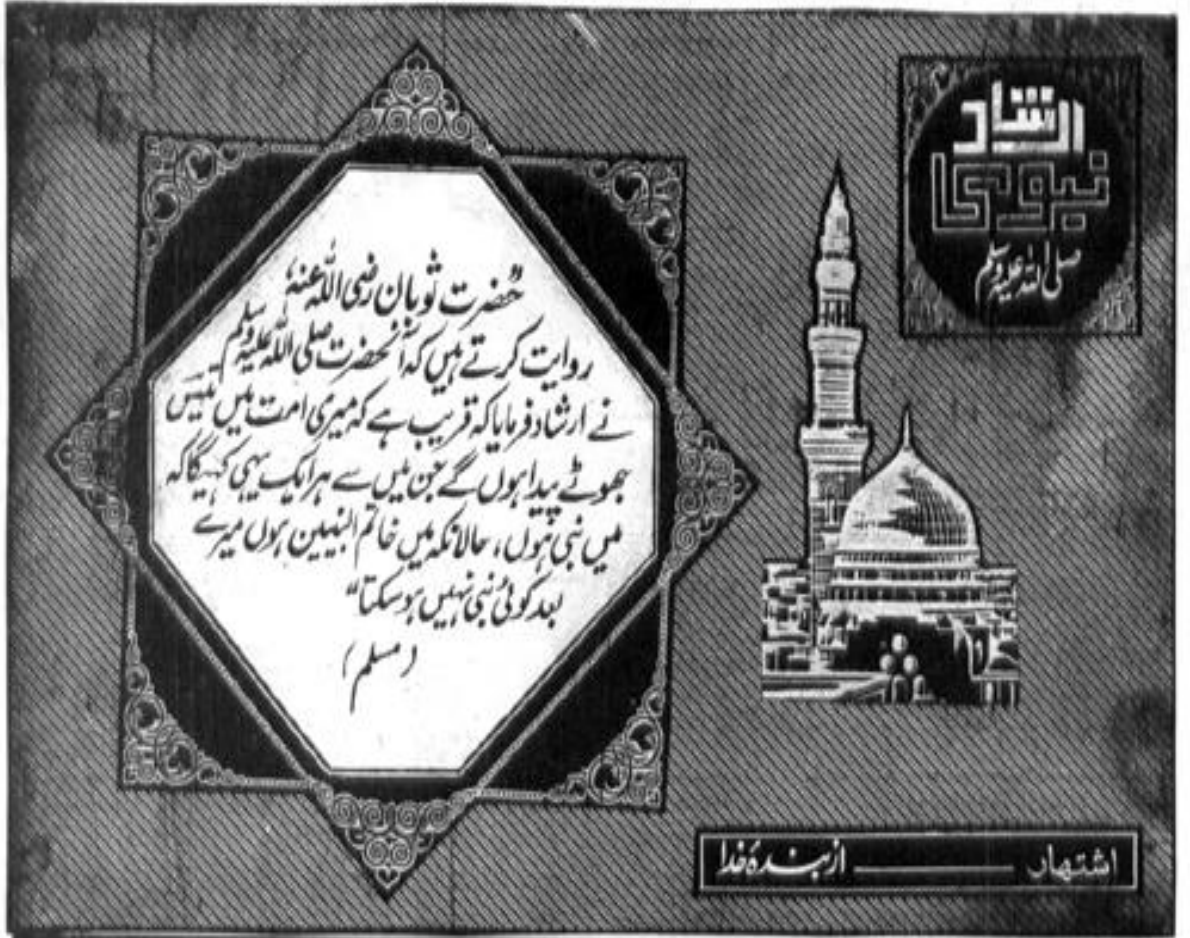 ارشاد
نبوی
صلی اللہ علیہ وسلم
"حضرت ثوبان رضی اللہ عنہ،
روایت کرتے ہیں کہ آنحضرت صلی اللہ علیہ وسلم
نے ارشاد فرمایا کہ قریب ہے کہ میری امت میں تیس
جھوٹے پیدا ہوں گے جن میں سے ہر ایک یہی کہیگا کہ
میں نبی ہوں، حالانکہ میں خاتم النبیین ہوں میرے
بعد کوئی نبی نہیں ہو سکتا"
(مسلم)
اشتہار ــــــــــــ از بندۂ خدا